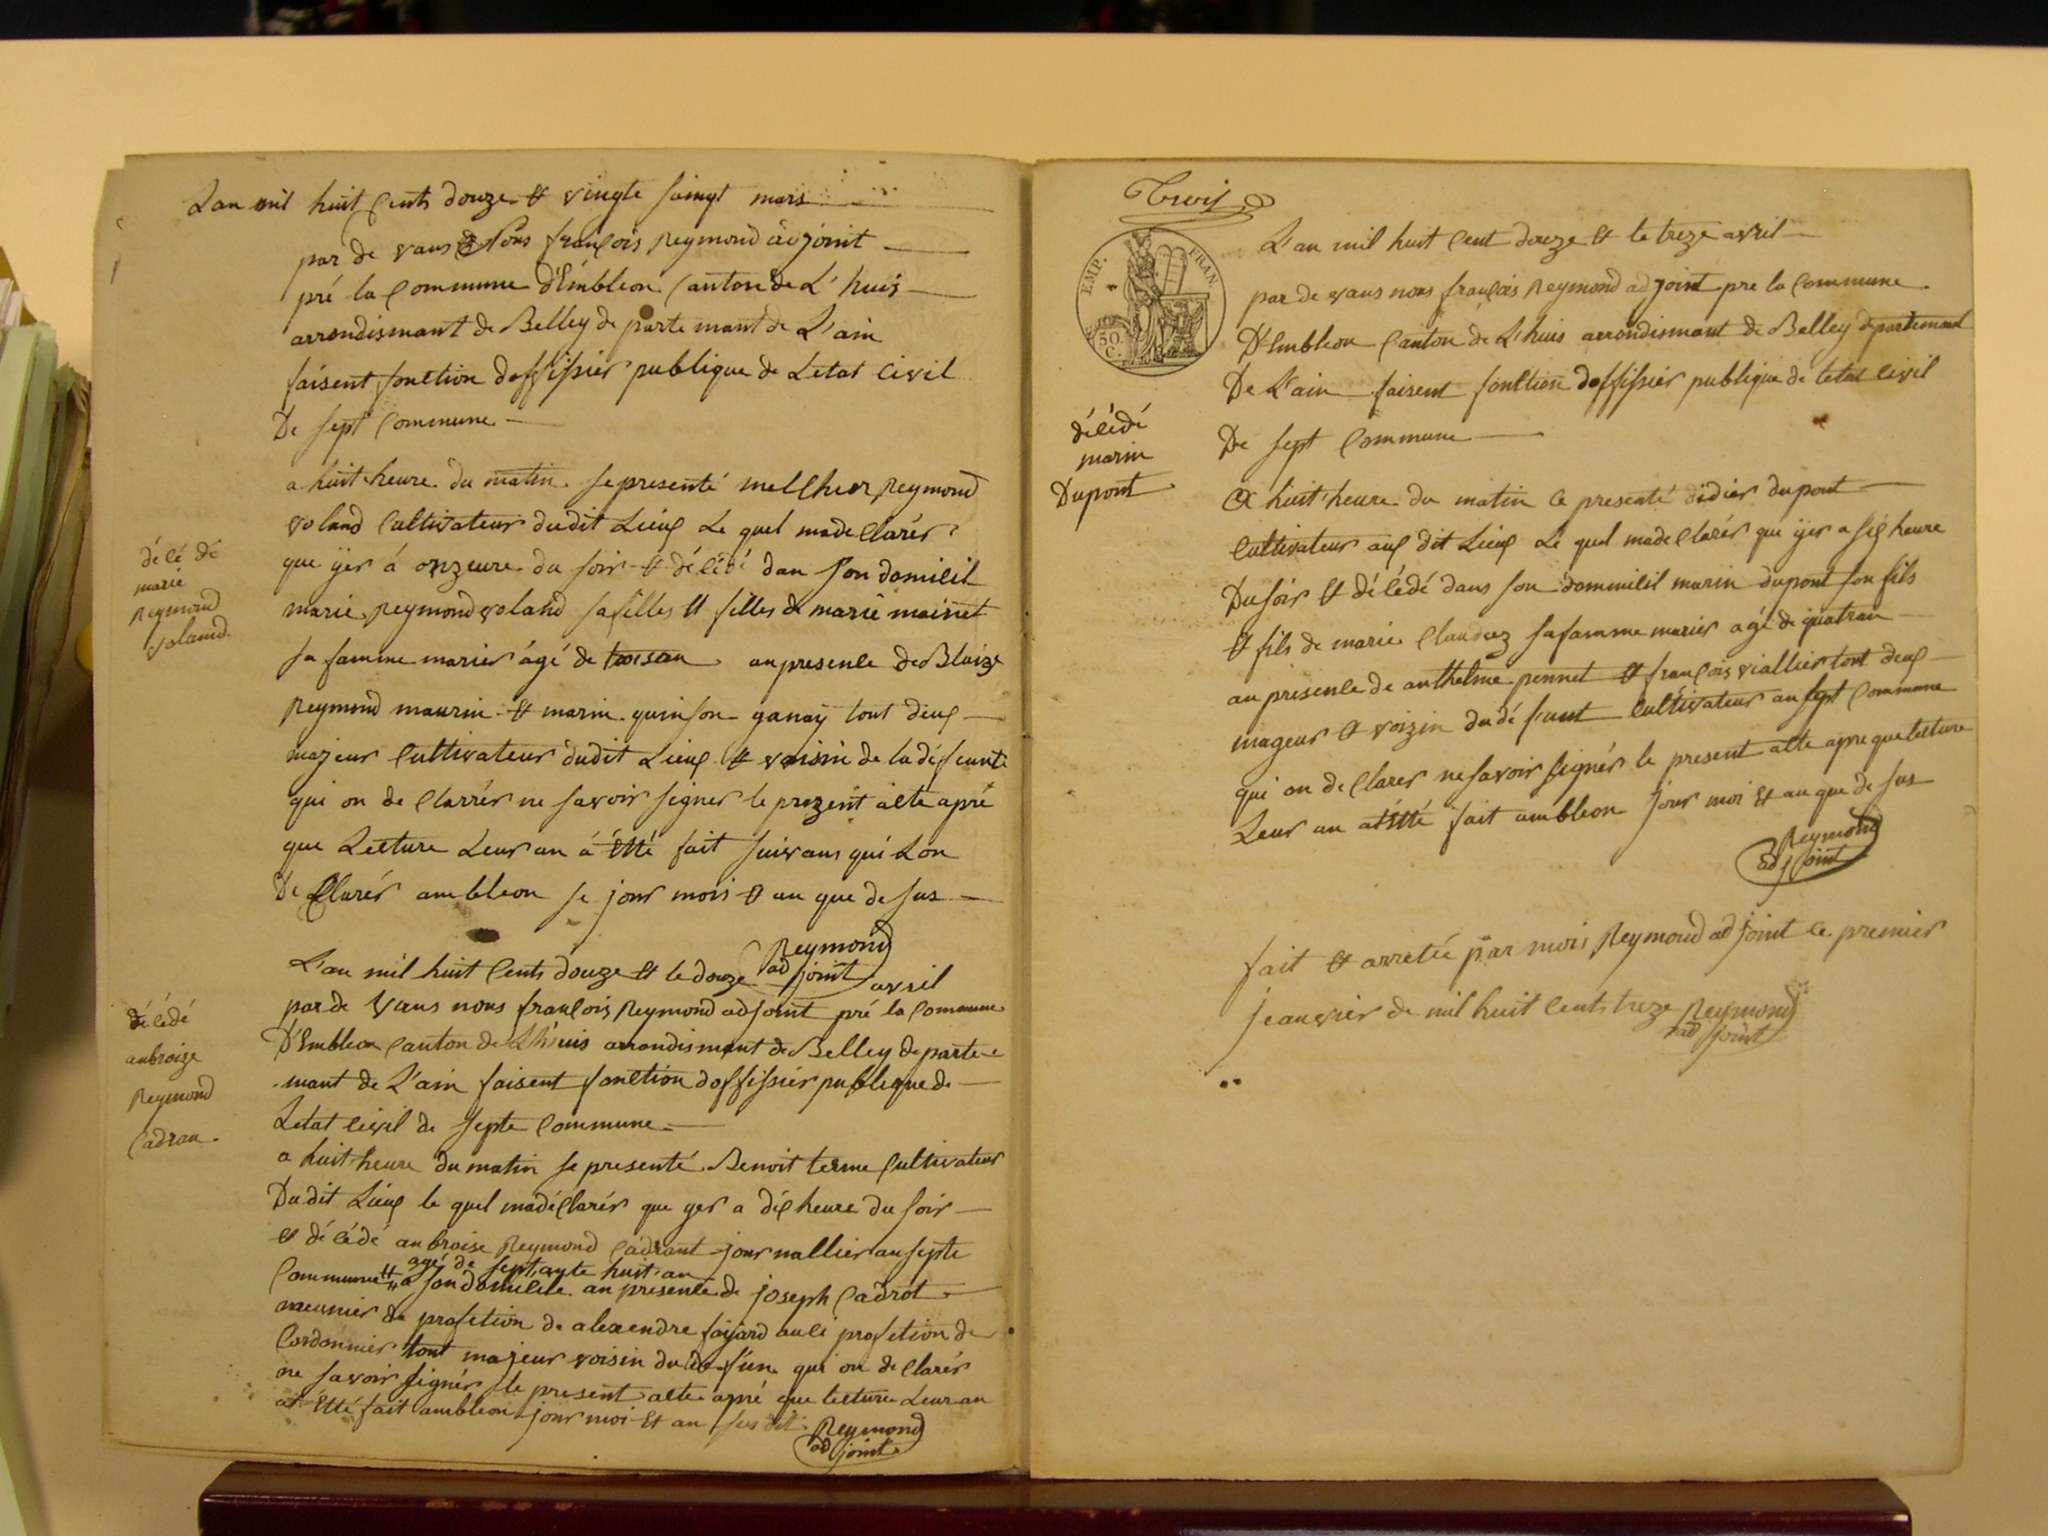 L'an mil huit cents douze et vingte sainqt mars
par de vans Nous françois Reymond adjoint
pré la commune d'Embleon canton de L'huis
arrondismant de Belley de parte mant de L'ain
faisent fonction doffissier publique de Letat civil
De sept commune
a huit heure du matin se presenté mellheor Reymond
voland cultivateur dudit Lieux Le quel made clarér
que yer á onzeure du soir et décédé dan son domicil
marie Reymond voland sa filles et filles de marie moinet
sa famme marier ágé de troisan au presence de Blaize
Reymond maurin et marin quinson ganay tout deux
majeur cultivateur dudit Lieux et voisin de la défeunte
qui on de clarrér ne savoir signer le prezent acte apré
que Lecture Leur an á étté fait suivans qui Lon
De clarér ambleon se jour mois et an que de sus
Reymond
adjoint
dé cé dé
marie
Reymond
voland
L'an mil huit cents douze et le douze avril
par de vans nous françois Reymond adjoint pré la commune
D'Embleon canton de L'huis arrondismant de Belley departe-
mant de L'ain faisent fonction doffissiér publique de
Letat civil de septe commune
a huit heure du matin se presenté Benoit terme cultivateur
Du dit Lieux le quel madéclarér que yer a dix heure du soir
et décédé anbroise Reymond cadrant journallier au septe
agé de septante huit an
commune et a son domicile an presence de joseph cadrot
meunier de profetion de alexendre fayard auci profetion de
Cordonnier tout majeur voisin du defun qui on de clarér
ne savoir signér le present acte apré que lecture Leur an
at étté fait ambleon jour moi et an sus dit
Reymond
adjoint
décédé
anbroize
Reymond
Cadran
Trois
EMP. FRAN
50
C.
L'an mil huit cent douze et le treze avril
par de vans nous françois Reymond adjoint pre la commune
D'Embleon canton de L'huis arrondismant de Belley departemant
De L'ain faisent fonction doffissiér publique de letat civil
De sept commune
a huit heure du matin ce presenté didier dupont
cultivateur aux dit Lieux Le quel made clarér que yer a six heure
Du soir et décédé dans son dommicil marin dupont son fils
et fils de marie claudez sa famme marier agé de quatran
au presence de anthelme pennet et françois viallier tout deux
mageur et voizin du dé funt cultivateur au sept commune
qui on de clarer ne savoir signér le present acte apre que lecture
Leur an at étté fait ambleon jour moi et an que de sus
Reymond
adjoint
décédé
marin
Dupont
fait et arretée par mois Reymond adjoint le premier
jeanvier de mil huit cents treze Reymond
adjoint